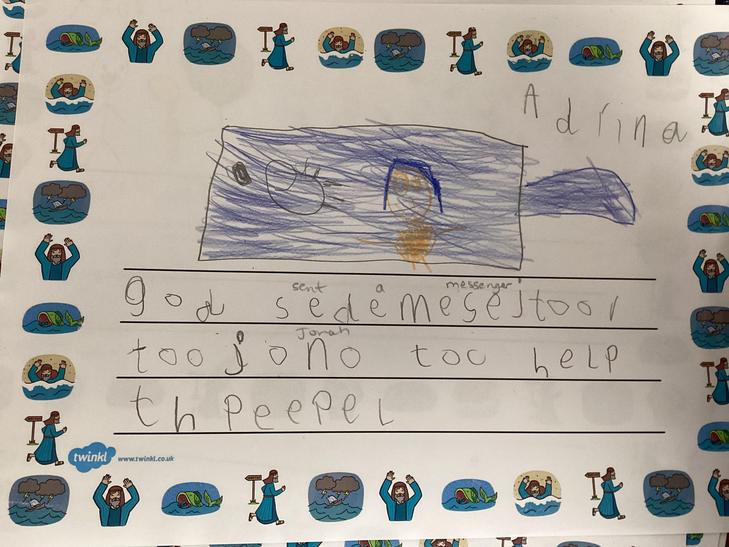 Adrina
sent a messenger
god sedemesejtoor
Jonah
too jono too help
th peepel
twinkl www.twinkl.co.uk